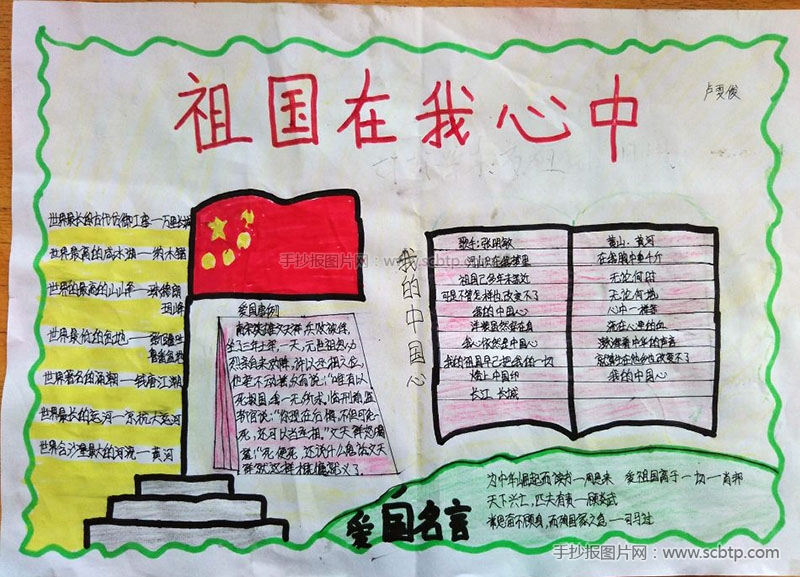 祖国在我心中
卢雯俊
世界最长的古代防御工事—万里长城
世界最高的咸水湖—纳木错
世界的最高的山峰—珠穆朗
玛峰
世界最低的盆地—
鲁番盆地
世界著名的涌潮—钱唐江潮
世界最长的运河—京杭大运河
世界含沙量最大的河流—黄河
爱国事例
南宋英雄文天祥兵败被俘,
坐了三年土牢,
一天,元
亲自来劝降,许以丞相之位,
他毫不动摇,反而说:“唯有以
死报国,我一无所求。临刑前,监
斩官说:“你现在后悔,不但可免
死,还可以当丞相。”文天祥怒喝
道:“死便死,还说什么鬼话”文天
祥就这样慷慨就义了。
我的中国心
歌手:张明敏
河山只在我梦里
祖国已多年未亲近
可是不管怎样也改变不了
我的中国心
洋装虽然穿在身
我心依然是中国心
我的祖先早已把我的一切
烙上中国印
长江,长城
黄山,黄河
在我胸中重千斤
无论何时
无论何地
心中一样亲
流在心里的血
澎湃着中华的声音
就算生在他乡也改变不了
我的中国心
爱国名言
为中华崛起而读书—周恩来 爱祖国高于一切—肖邦
天下兴亡,匹夫有责—顾炎武
常思奋不顾身,而殉国家之急—司马迁
手抄报图片网:www.scbtp.com
手抄报图片网:www.scbtp.com